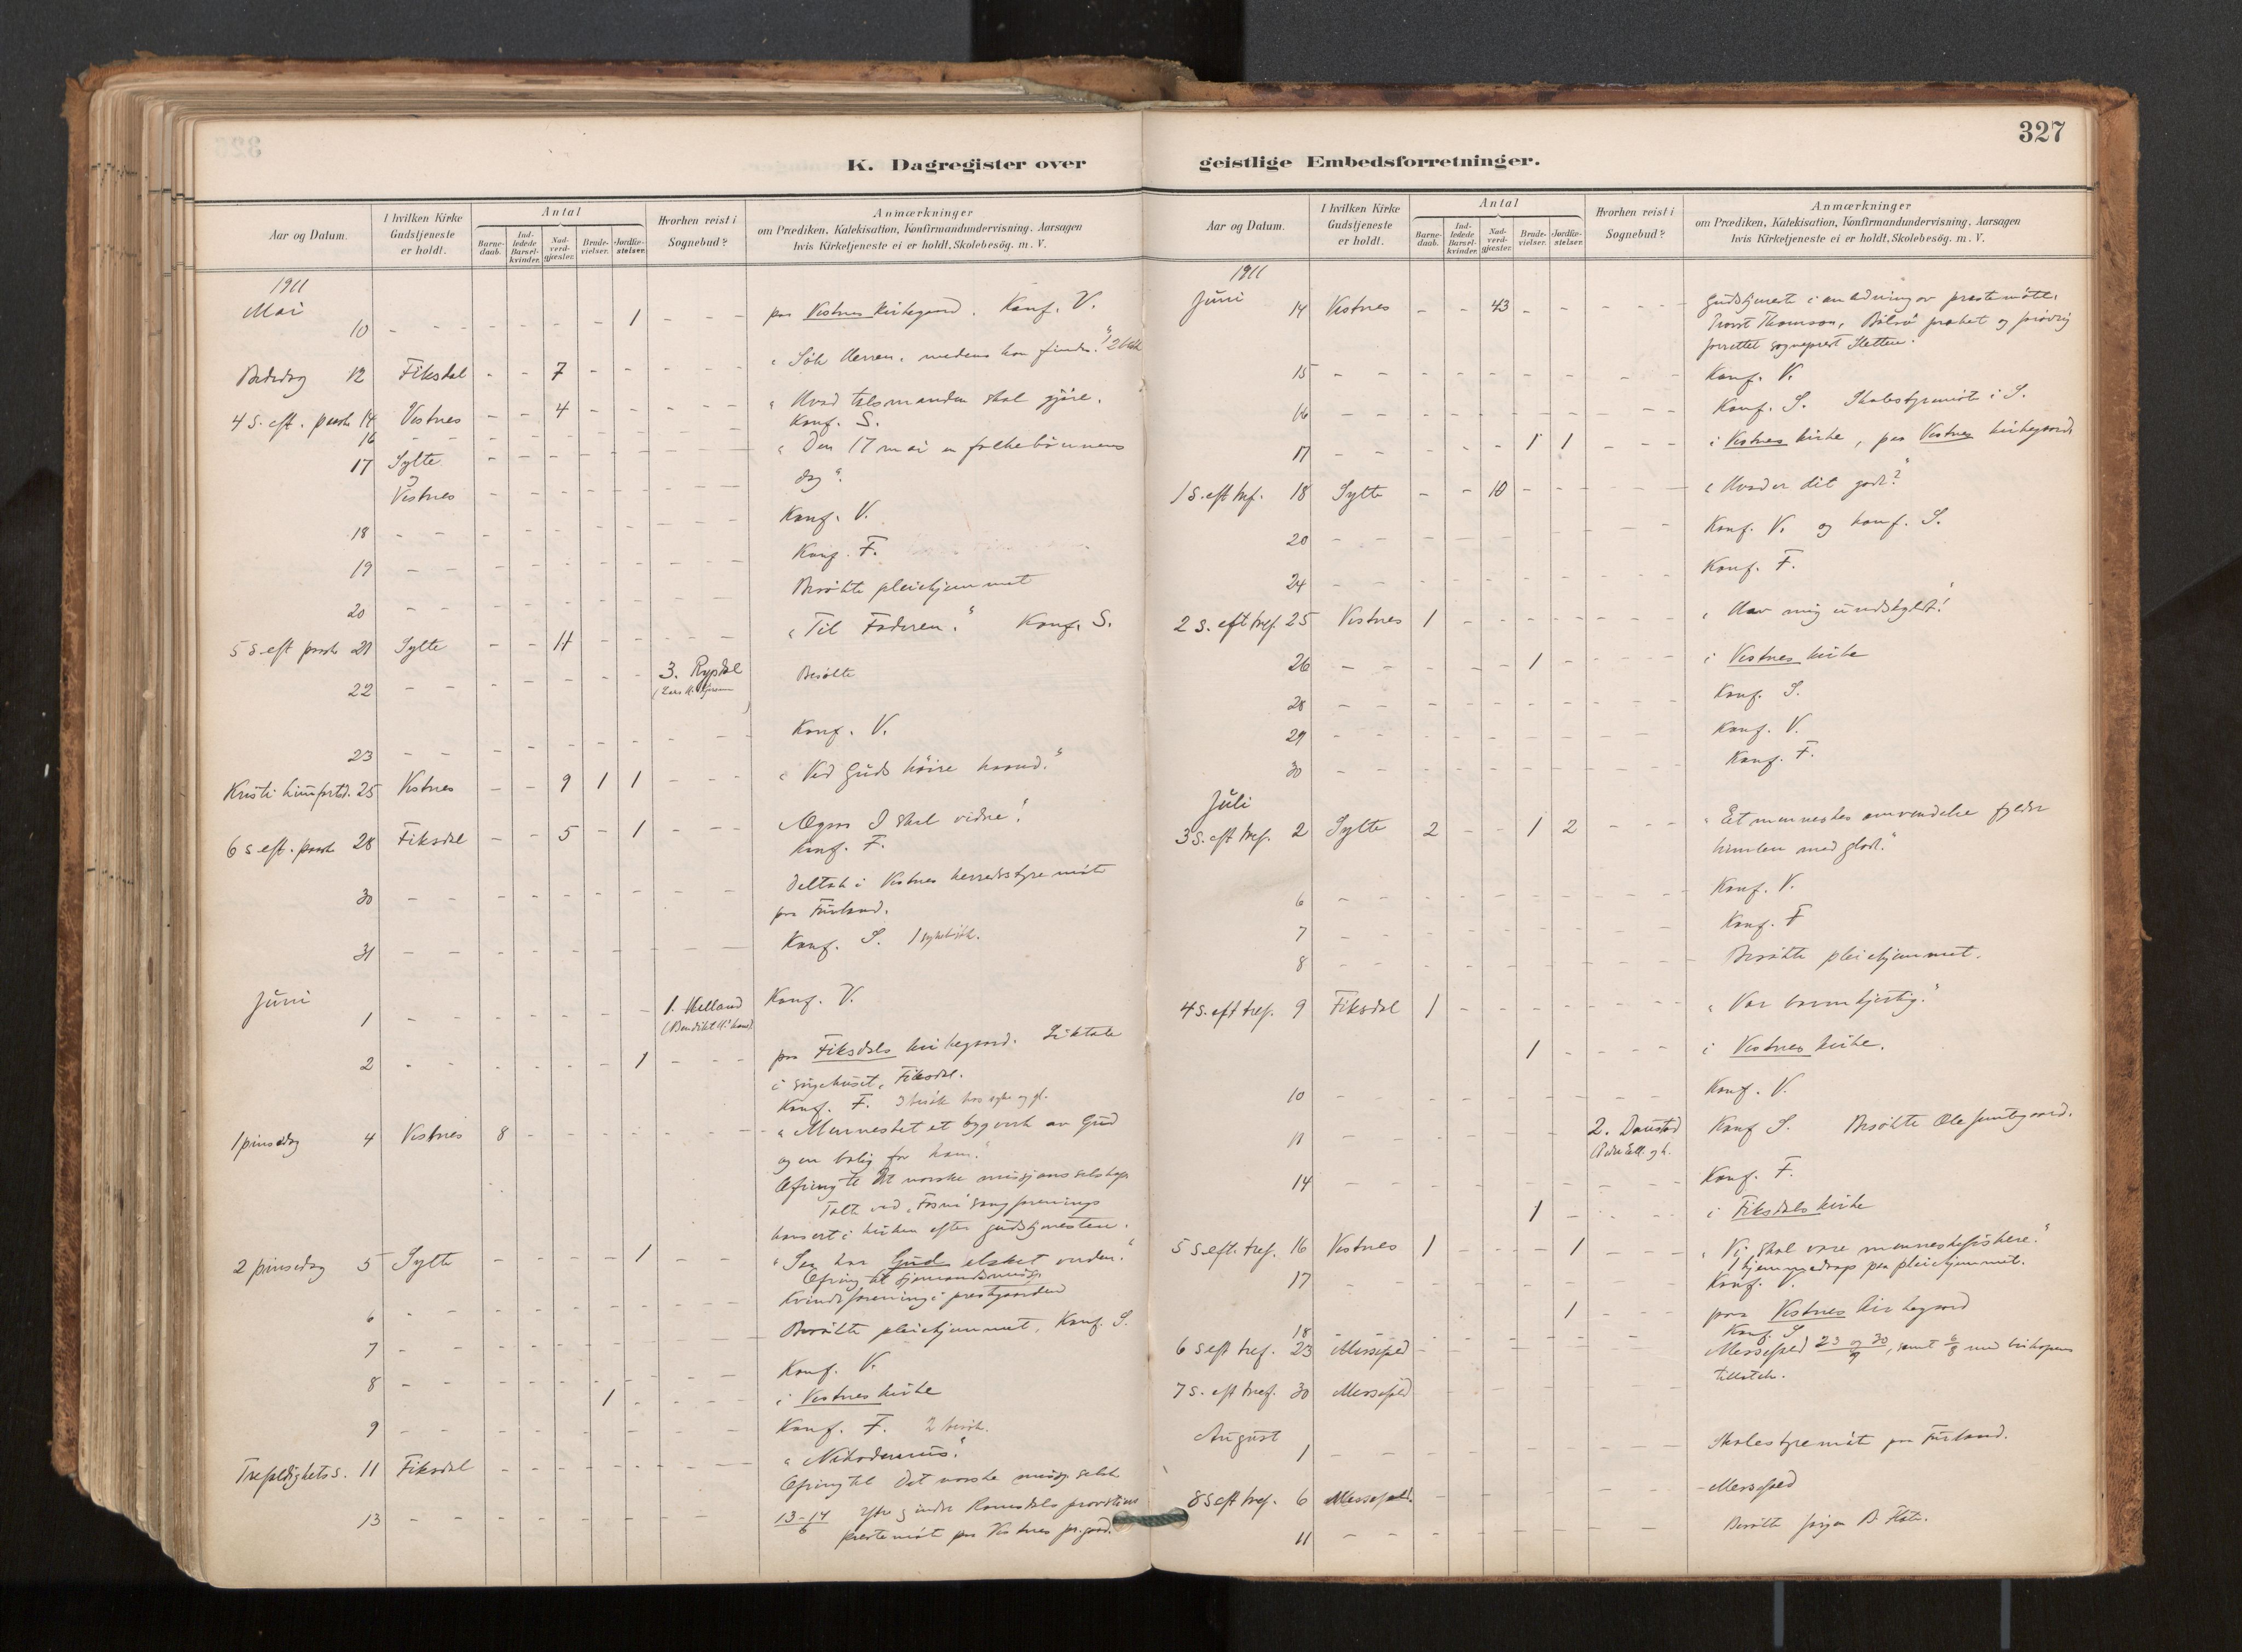 327
K. Dagregister over
geistlige Embedsforretninger.
Aar og Datum.
I hvilken Kirke
Gudstjeneste
er holdt.
Antal
Barne-
daab.
Ind-
ledede
Barsel-
kvinder.
Nad-
verd-
gjæster.
Brude-
vielser.
Jordfæ-
stelser.
Hvorhen reist i
Sognebud?
Anmærkninger
om Prædiken, Katekisation, Konfirmandundervisning, Aarsagen
hvis Kirketjeneste ei er holdt, Skolebesög. m. V.
1911
Mai
10 1 paa Vestnes kirkegaard. Konf. V.
Bededag 12 Fiksdal 7 "Søk Herren, medens han findes."
4 s. eft. paaske 14 Vestnes 4 "Hvad talsmanden skal gjöre.
16 Konf. S.
17 Sylte "Den 17 mai en folkebönnens
og
Vestnes dag".
18 Konf. V.
19 Konf. F.
20 Besökte pleiehjemmet
5 s. eft paaske 21 Sylte 11 "Til Faderen." Konf. S.
22 3. Rypdal Besökte
23 Konf. V.
Kristi himfartsd. 25 Vestnes 9 1 1 "Ved Guds höire haand."
6 s. eft. paaske 28 Fiksdal 5 1 Ogsaa I skal vidne!
Konf. F.
30 Deltok i Vestnes herredsstyremöte
paa Furland.
31 Konf. S. 1 sykebesök.
Juni
1 1. Helland Konf. V.
2 1 paa Fiksdals kirkegaard. Liktale
i sørgehuset, Fiksdal.
Konf. F. 3 besök hos syke og gl.
1 pinsedag 4 Vestnes 8 "Mennesket et bygverk av Gud
og en bolig for ham."
Ofring til Det norske misjonsselskap
Talte ved sangforenings
konsert i kirken efter gudstjenesten.
2 pinsedag 5 Sylte 1 "Saa har Gud elsket verden."
Ofring til sjømandsmisj.
6 Kvindeforening i prestgaarden
7 Besökte pleiehjemmet. Konf. S.
8 Konf. V.
1 i Vestnes kirke
9 Konf. F. 2 besök.
Trefoldighetss. 11 Fiksdal "Nikodemus."
Ofring til Det norske misj. selsk.
13 13-14/6 Ytre og indre Romsdals provsties
prestemöte paa Vestnes pr.gaard.
Aar og Datum.
I hvilken Kirke
Gudstjeneste
er holdt.
Antal
Barne-
daab.
Ind-
ledede
Barsel-
kvinder.
Nad-
verd-
gjæster.
Brude-
vielser.
Jordfæ-
stelser.
Hvorhen reist i
Sognebud?
Anmærkninger
om Prædiken, Katekisation, Konfirmandundervisning, Aarsagen
hvis Kirketjeneste ei er holdt, Skolebesög. m. V.
1911
Juni
14 Vestnes 43 Gudstjeneste i anledning av prestemötet.
Provst Thomson, Bolsö præket og
forrettet sogneprest Sletten.
15 Konf. V.
16 Konf. S. Skolestyremöte i S.
17 1 1 i Vestnes kirke, paa Vestnes kirkegaard
1 s. eft tref. 18 Sylte 10 "Hvad er dit gods?"
20 Konf. V. og konf. S.
24 Konf. F.
2 s. eft tref. 25 Vestnes 1 "Hav mig undskyldt!"
26 1 i Vestnes kirke
28 Konf. S.
29 Konf. V.
30 Konf. F.
Juli
3 s. eft tref. 2 Sylte 2 1 2 "Et menneskes omvendelse fylder
himlen med glæde."
6 Konf. V.
7 Konf. F
8 Besökte pleiehjemmet.
4 s. eft tref. 9 Fiksdal 1 "Vær barmhjertig."
1 i Vestnes kirke.
10 Konf. V.
11 2. Daustad Konf S. Besökte Ole
14 Konf. F.
1 i Fiksdals kirke
5 s. eft. tref. 16 Vestnes 1 1 "Vi skal være menneskefiskere."
1 hjemmedaap paa pleiehjemmet.
17 Konf. V.
1 paa Vestnes kirkegaard
18 Konf. S
6 s eft tref. 23 Messefald Messefald 23 og 30, samt 6/8 med biskopens
tillatelse.
7 s. eft tref. 30 Messefald
August
1 Skolestyremöte paa Furland.
8 s eft tref. 6 Messefald. Messefald
11 Besökte